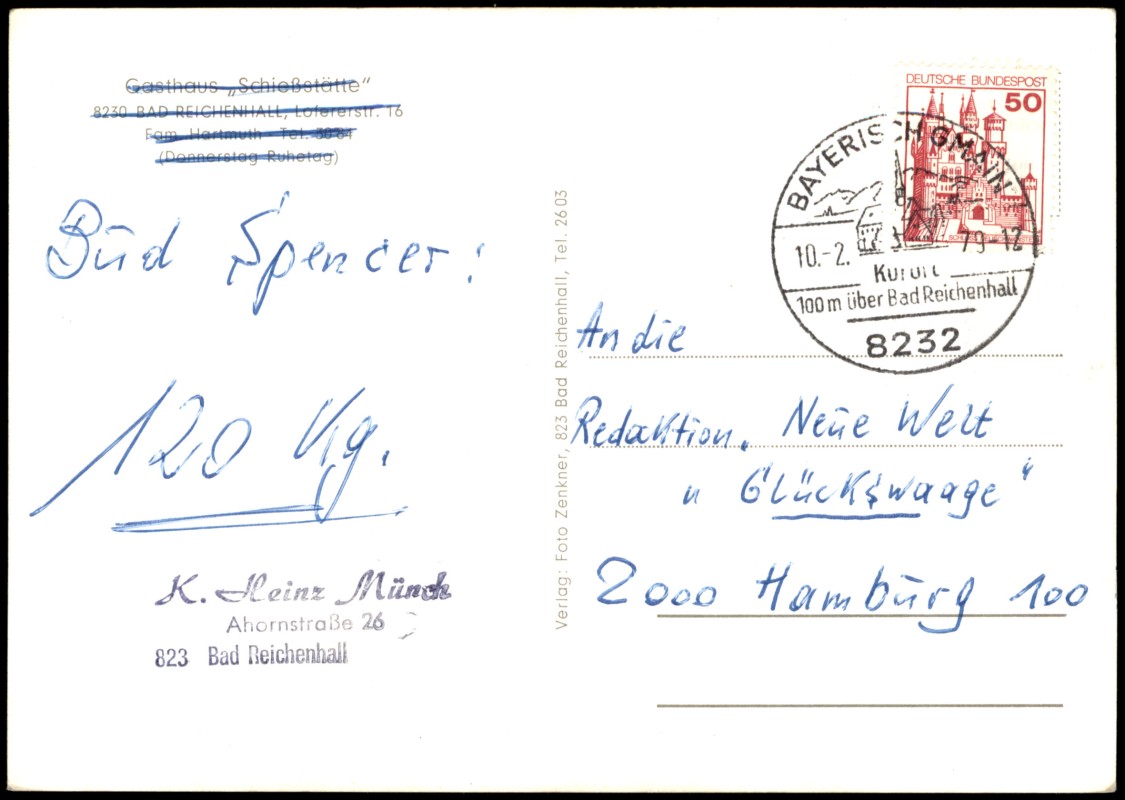 Gasthaus „Schießstätte"
8230 BAD REICHENHALL, Lofererstr. 16
Fam. Hartmuth · Tel.
(Donnerstag Ruhetag)
Bud Spencer:
120 Kg.
K. Heinz Münch
Ahornstraße 26
823 Bad Reichenhall
Verlag: Foto Zenkner, 823 Bad Reichenhall, Tel. 2603
DEUTSCHE BUNDESPOST
50
BAYERISCH GMAIN
10.-2. 79-12
Kurort
100 m über Bad Reichenhall
8232
An die
Redaktion. Neue Welt
„ Glückswaage"
2000 Hamburg 100